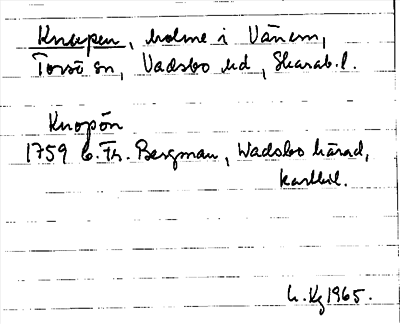 Knapen, holme i Vänern,
Torsö sn, Vadsbo hd, Skarab. l.
Knopön
1759 C. Fr. Bergman, Wadsbo härad,
kartbil.
L. Kg 1965.